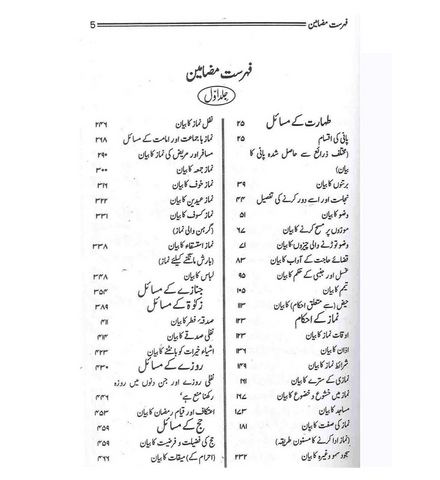 فہرست مضامین
5
فہرست مضامین
جلد اوّل
طہارت کے مسائل ۲۵
پانی کی اقسام ۲۵
(مختلف ذرائع سے حاصل شدہ پانی کا
بیان)
برتنوں کا بیان ۳۹
نجاست اور اسے دور کرنے کی تفصیل ۴۴
وضو کا بیان ۵۱
موزوں پر مسح کرنے کا بیان ۶۷
وضو توڑنے والی چیزوں کا بیان ۷۱
قضائے حاجت کے آداب کا بیان ۸۳
غسل اور جنبی کے حکم کا بیان ۹۵
تیمم کا بیان ۱۰۵
حیض (سے متعلق احکام) کا بیان ۱۱۳
نماز کے احکام ۱۲۳
اوقات نماز کا بیان ۱۲۳
اذان کا بیان ۱۳۶
شرائط نماز کا بیان ۱۴۹
نمازی کے سترے کا بیان ۱۶۱
نماز میں خشوع و خضوع کا بیان ۱۶۷
مساجد کا بیان ۱۷۳
نماز کی صفت کا بیان ۱۸۱
(نماز ادا کرنے کا مسنون طریقہ)
سجود سہو وغیرہ کا بیان ۲۳۲
نفل نماز کا بیان ۲۴۶
نماز باجماعت اور امامت کے مسائل ۲۶۸
مسافر اور مریض کی نماز کا بیان ۲۹۰
نماز جمعہ کا بیان ۳۰۰
نماز خوف کا بیان ۳۱۶
نماز عیدین کا بیان ۳۲۲
نماز کسوف کا بیان ۳۳۱
(گرہن والی نماز)
نماز استسقاء کا بیان ۳۳۸
(بارش مانگنے کیلئے نماز)
لباس کا بیان ۳۴۸
جنازے کے مسائل ۳۵۴
زکوٰۃ کے مسائل ۳۸۹
صدقہ فطر کا بیان ۴۱۱
نفلی صدقے کا بیان ۴۱۴
اشیاء خیرات کو بانٹنے کا بیان ۴۲۳
روزے کے مسائل ۴۳۰
نفلی روزے اور جن دنوں میں روزہ
رکھنا منع ہے ۴۴۶
اعتکاف اور قیام رمضان کا بیان ۴۵۳
حج کے مسائل ۴۵۹
حج کی فضیلت و فرضیت کا بیان ۴۵۹
(احرام کے) میقات کا بیان ۴۶۶